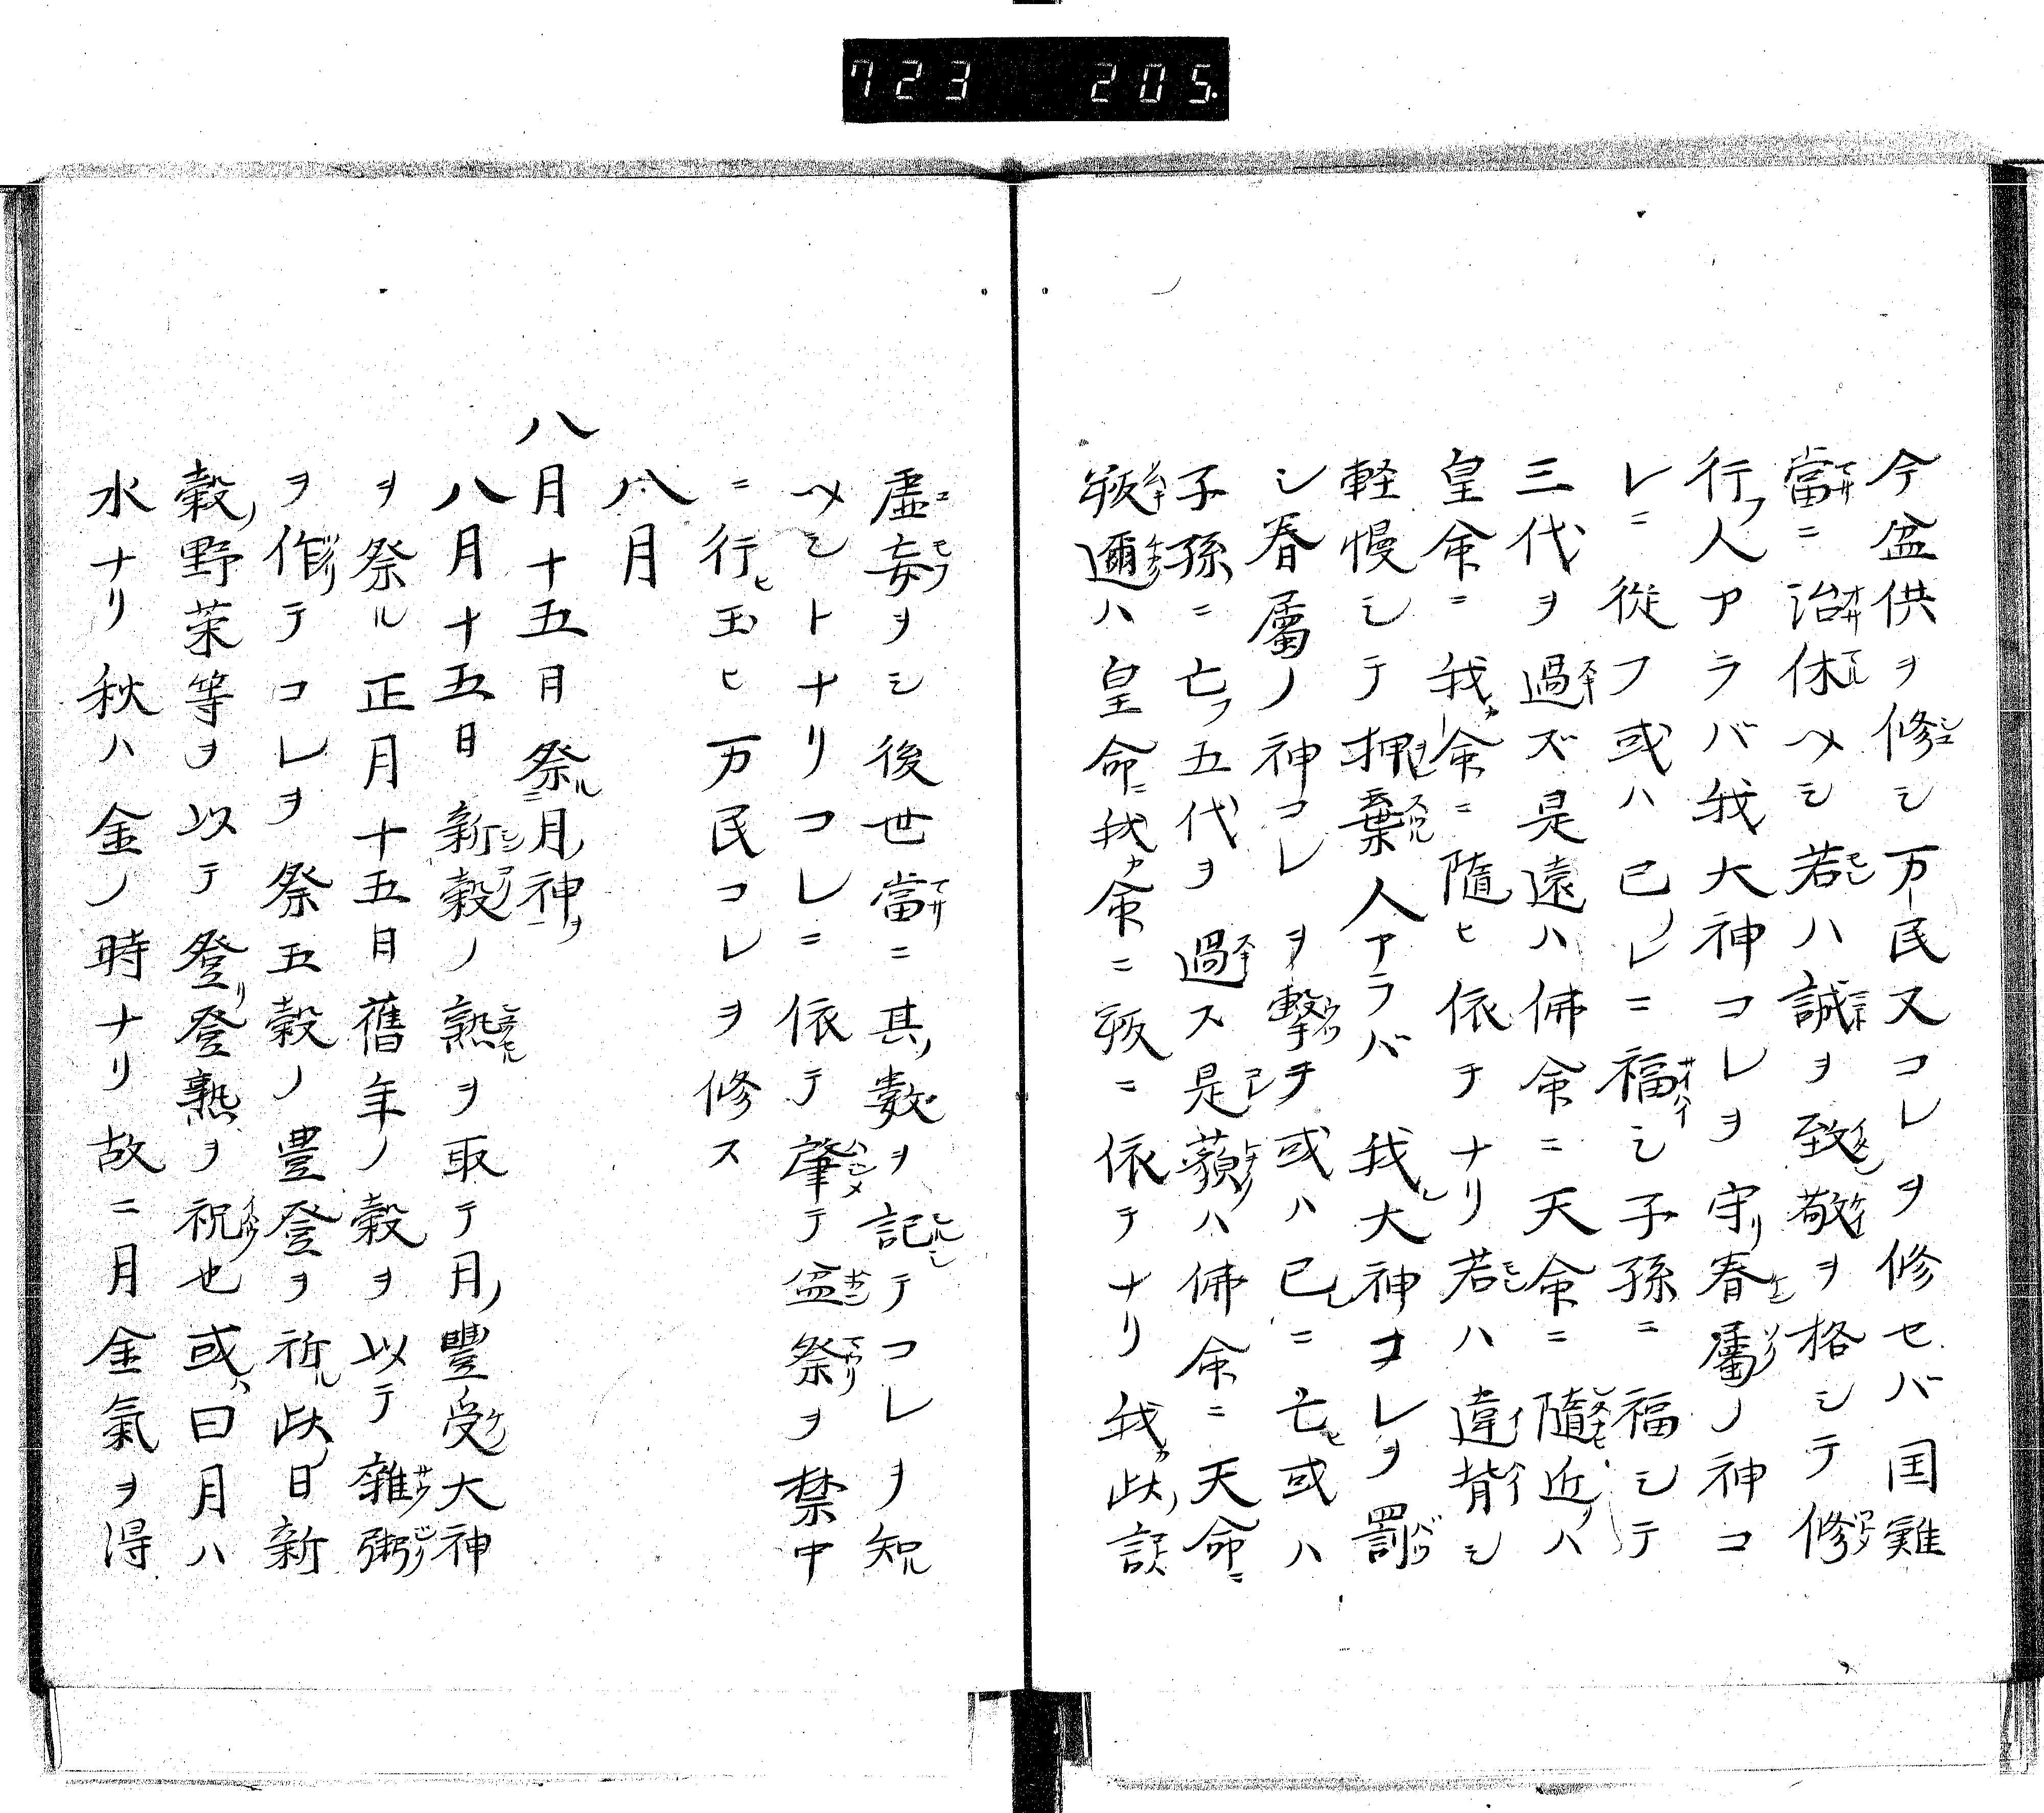 723 205
今盆供ヲ修シ万民又コレヲ修セバ国難
當ニ治休ヘシ若ハ誠ヲ致敬ヲ格シテ修
行フ人アラバ我大神コレヲ守リ眷屬ノ神コ
レニ從フ或ハ已ノレニ福シ子孫ニ福シテ
三代ヲ過ズ是遠ハ佛命ニ天命ニ隨ヒ近ハ
皇命ニ我カ命ニ隨ヒ依テナリ若ハ違背シ
軽慢シテ押棄人アラバ我大神コレヲ罰
シ眷屬ノ神コレヲ擊チ或ハ已ニ亡ヒ或ハ
子孫ニ亡フ五代ヲ過ス是藐ハ佛命ニ天命ニ
叛邇ハ皇命ニ我カ命ニ叛ニ依テナリ我カ此ノ誤
虚妄ヲシ後世當ニ其ノ数ヲ記シテコレヲ知ル
ヘシトナリコレニ依テ肇テ盆祭ヲ禁中
ニ行ヒ玉ヒ万民コレヲ修ス
八月
八月十五日祭ル二月ノ神ヲ一
八月十五日新穀ノ熟ヲ取テ月ノ豐受大神
ヲ祭ル正月十五日舊年ノ穀ヲ以テ雜粥
ヲ作テコレヲ祭五穀ノ豊登ヲ祈ル此ノ日新
穀ノ野菜等ヲ以テ登リ登熟ヲ祝也或ハ曰月ハ
水ナリ秋ハ金ノ時ナリ故ニ月金氣ヲ得